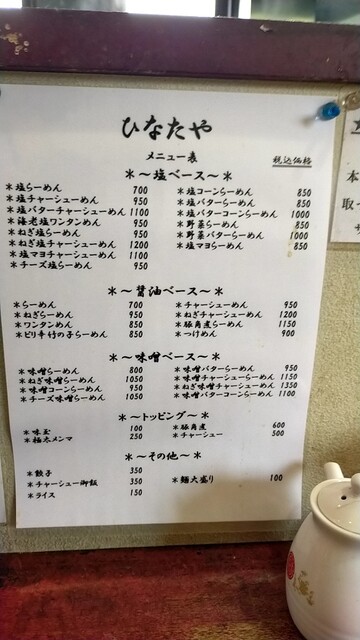 ひなたや
メニュー表
税込価格
＊～塩ベース～＊
＊塩らーめん 700
＊塩チャーシューめん 950
＊塩バターチャーシューめん 1100
＊海老塩ワンタンめん 950
＊ねぎ塩らーめん 950
＊ねぎ塩チャーシューめん 1200
＊塩マヨチャーシューめん 1100
＊チーズ塩らーめん 950
＊塩コーンらーめん 850
＊塩バターらーめん 850
＊塩バターコーンらーめん 1000
＊野菜らーめん 850
＊野菜バターらーめん 1000
＊塩マヨらーめん 850
＊～醤油ベース～＊
＊らーめん 700
＊ねぎらーめん 950
＊ワンタンめん 850
＊ピリ辛竹の子らーめん 850
＊チャーシューめん 950
＊ねぎチャーシューめん 1200
＊豚角煮らーめん 1150
＊つけめん 900
＊～味噌ベース～＊
＊味噌らーめん 800
＊ねぎ味噌らーめん 1050
＊味噌コーンらーめん 950
＊チーズ味噌らーめん 1050
＊味噌バターらーめん 950
＊味噌チャーシューらーめん 1150
＊ねぎ味噌チャーシューめん 1350
＊味噌バターコーンらーめん 1100
＊～トッピング～＊
＊味玉 100
＊極太メンマ 250
＊豚角煮 600
＊チャーシュー 500
＊～その他～＊
＊餃子 350
＊チャーシュー御飯 350
＊ライス 150
＊麺大盛り 100
本
取っ